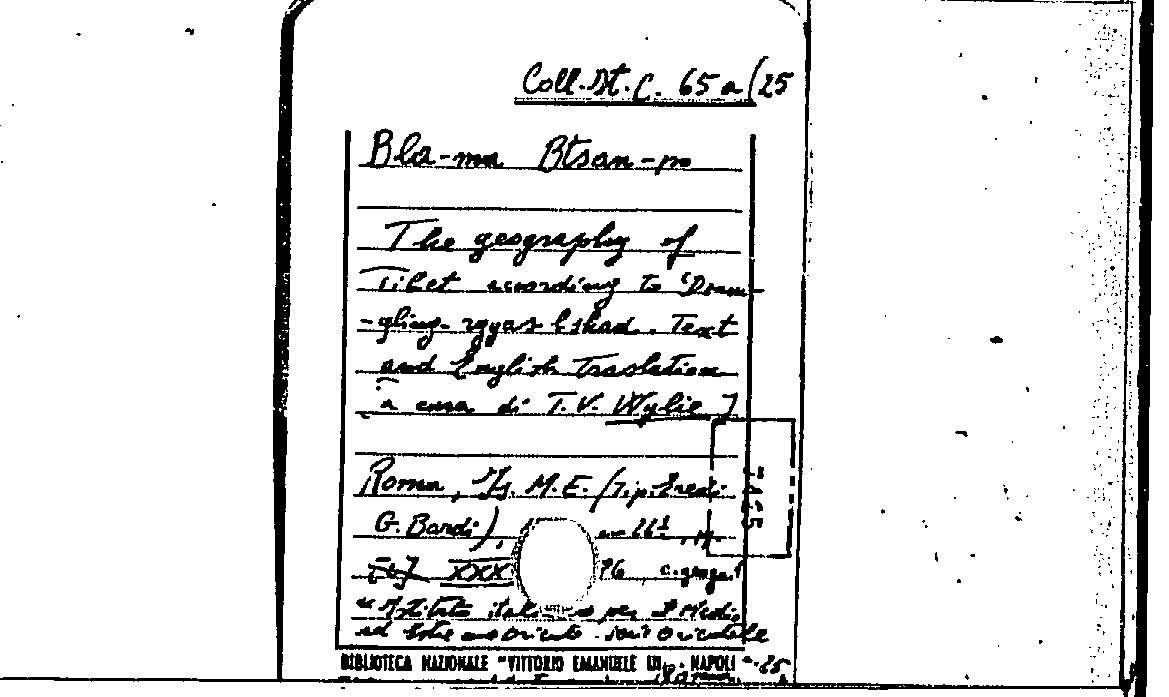 Coll. It. C. 65 a (25
Bla-ma Btsan-po
The geography of
Tibet according to 'Dzam-
-gling-rgyas bshad. Text
and English Traslation
[a cura di T.V. Wylie]
Roma, Is. M.E. (Tip. Eredi
G. Bardi),
XXX 76 c. geogr.
"Istituto italiano per il Medio
ed Estremo Oriente. Serie orientale
BIBLIOTECA NAZIONALE "VITTORIO EMANUELE III" - NAPOLI - 25